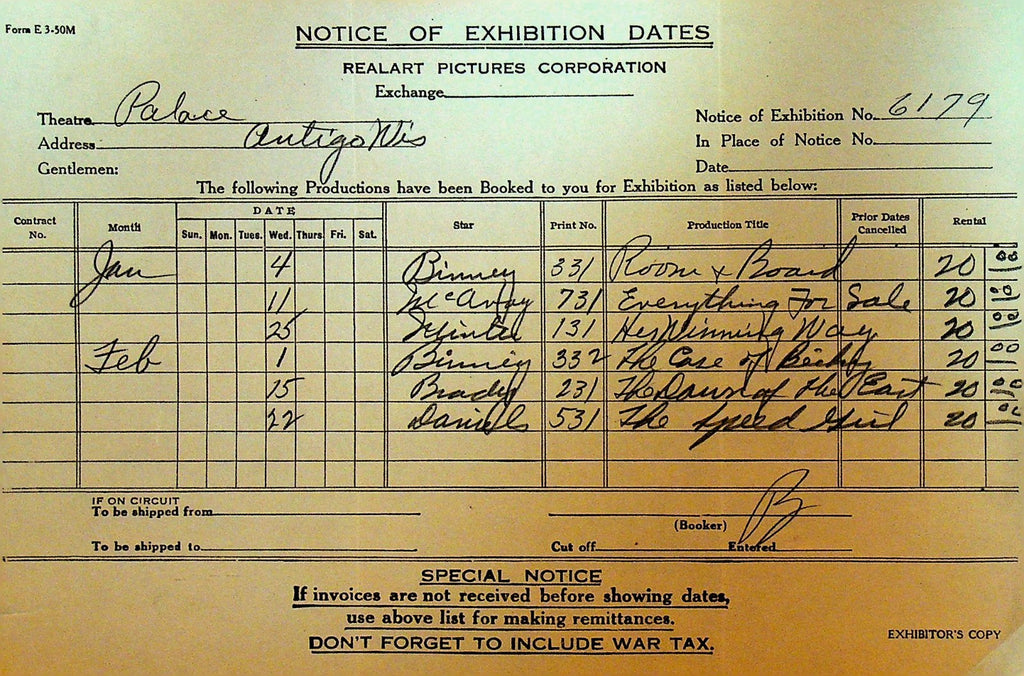 Form E 3-50M
NOTICE OF EXHIBITION DATES
REALART PICTURES CORPORATION
Exchange
Theatre Palace
Notice of Exhibition No. 6179
Address Antigo Wis
In Place of Notice No.
Gentlemen:
Date
The following Productions have been Booked to you for Exhibition as listed below:
Contract No. Month DATE Star Print No. Production Title Prior Dates Cancelled Rental
Sun. Mon. Tues. Wed. Thurs. Fri. Sat.
Jan 4 Binney 331 Room & Board 20 100
11 McAvoy 731 Everything For Sale 20
25 Minter 131 Her Winning Way 20
Feb 1 Binney 332 The Case of Becky 20 100
15 Brady 231 The Dawn of the East 20 100
22 Daniels 531 The Speed Girl 20
IF ON CIRCUIT
To be shipped from
(Booker)
To be shipped to
Cut off Entered
SPECIAL NOTICE
If invoices are not received before showing dates,
use above list for making remittances.
DON'T FORGET TO INCLUDE WAR TAX.
EXHIBITOR'S COPY